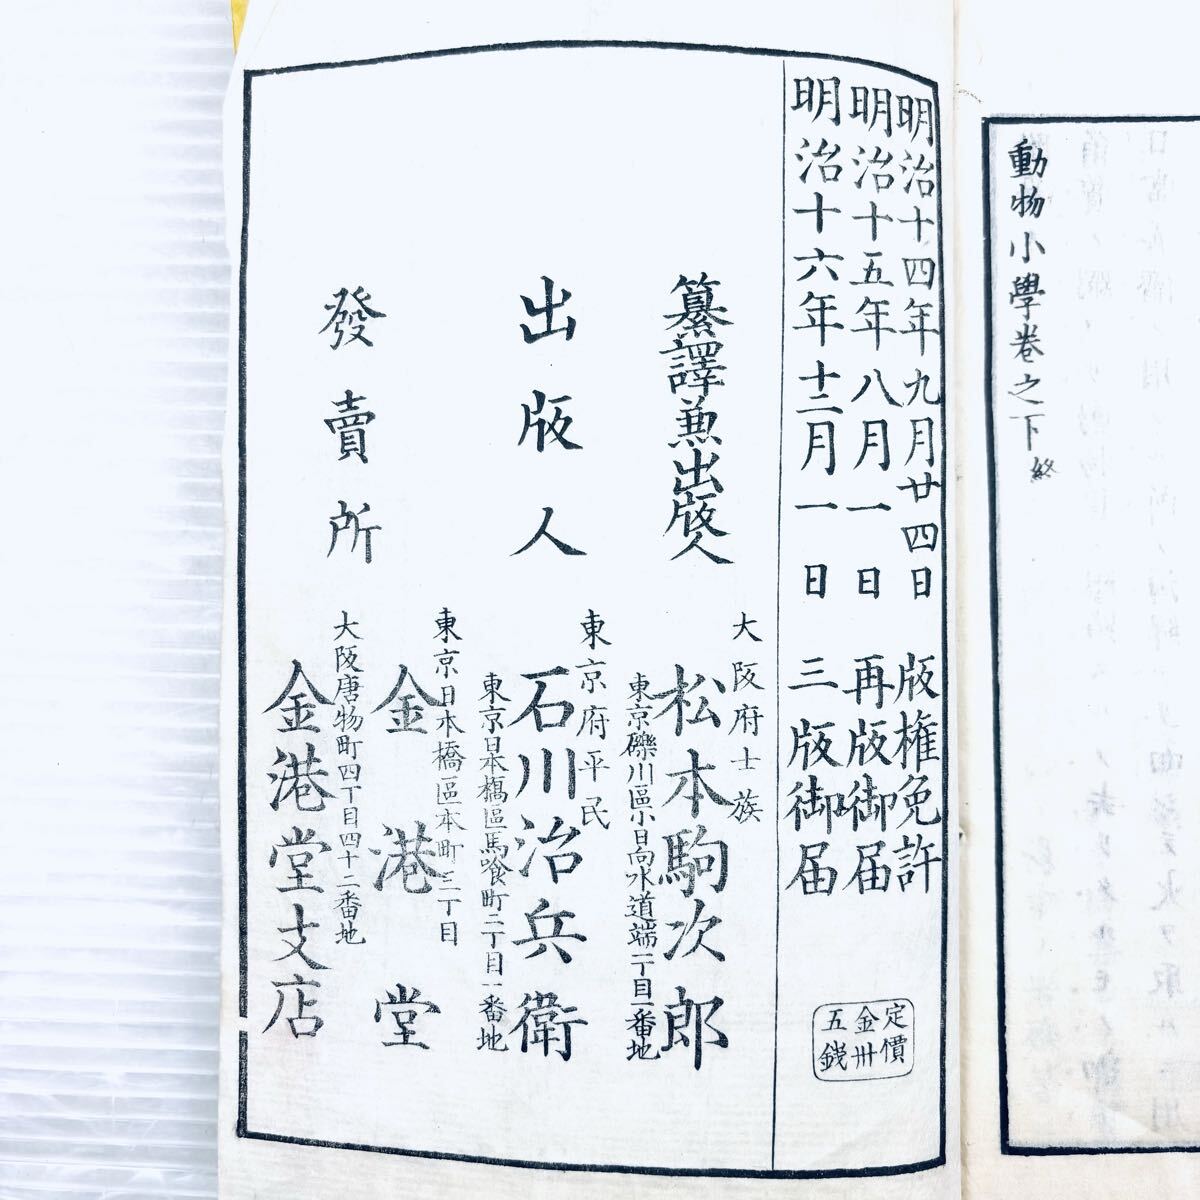 動物小學卷之下終
明治十四年九月廿四日 版權免許
明治十五年八月一日 再版御届
明治十六年十二月一日 三版御届
定價
金卅
五錢
大阪府士族
纂譯兼出版人 松本駒次郎
東京礫川區小日向水道端一丁目一番地
東京府平民
出版人 石川治兵衛
東京日本橋區馬喰町二丁目一番地
東京日本橋區本町三丁目
金港堂
發賣所
大阪唐物町四丁目四十二番地
金港堂支店